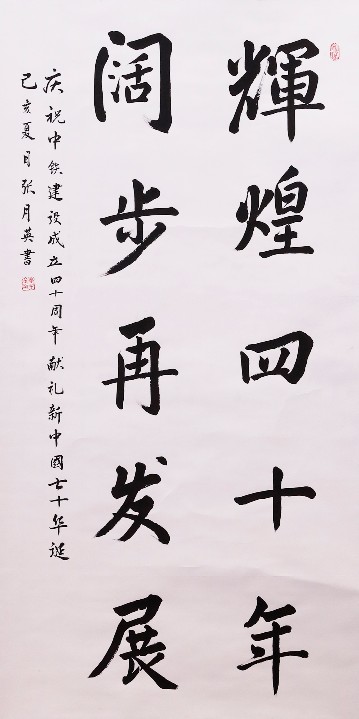 輝煌四十年
阔步再发展
庆祝中铁建设成立四十周年献礼新中國七十华诞
己亥夏月张月英書